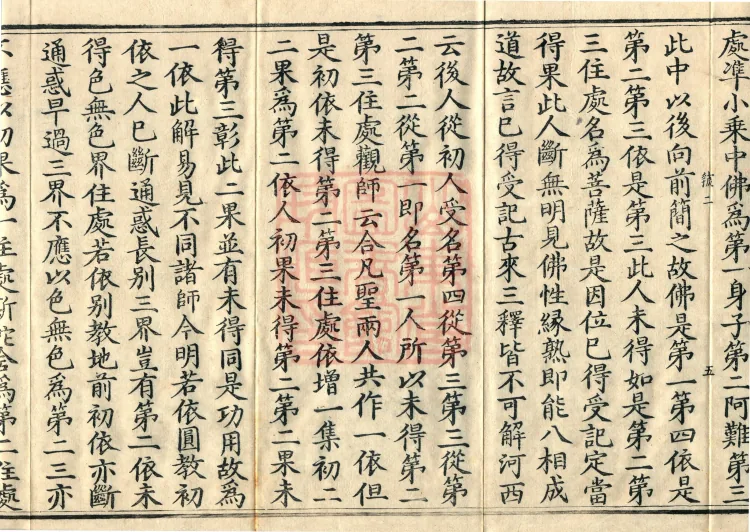 處準小乘中佛為第一身子第二阿難第三
此中以後向前簡之故佛是第一第四依是
第二第三依是第三此人未得如是第二第
三住處名為菩薩故是因位已得受記定當
得果此人斷無明見佛性緣熟即能八相成
道故言已得受記古來三釋皆不可解河西
云後人從初人受名第四從第三第三從第
二第二從第一即名第一人所以未得第二
第三住處觀師云合凡聖兩人共作一依但
是初依未得第二第三住處依增一集初二
二果為第二依人初果未得第二第二果未
得第三彰此二果並有未得同是功用故為
一依此解易見不同諸師今明若依圓教初
依之人已斷通惑長別三界豈有第二依未
得色無色界住處若依別教地前初依亦斷
通惑早過三界不應以色無色為第二三亦
不應以初果為一住處斯陀含為第二住處
二
五